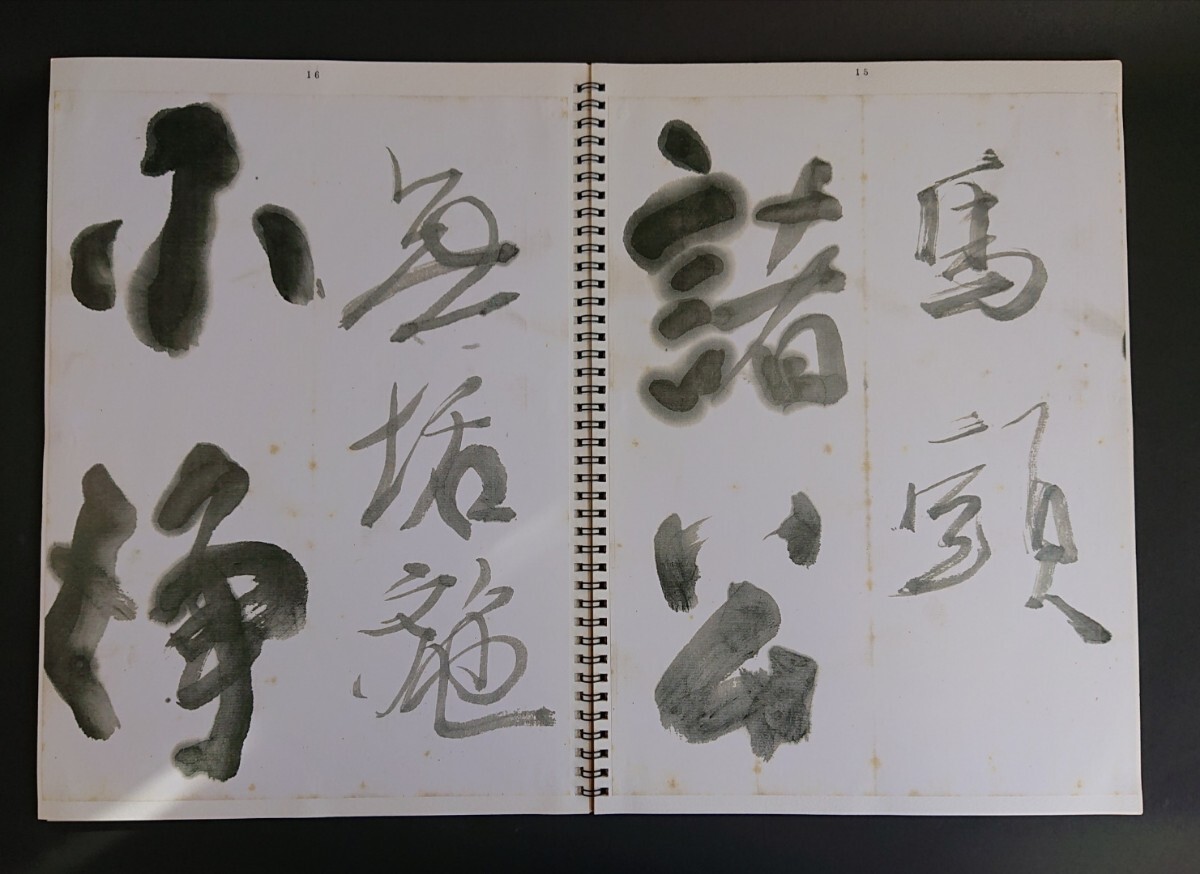 15
馬頭
諸公
16
無垢
小